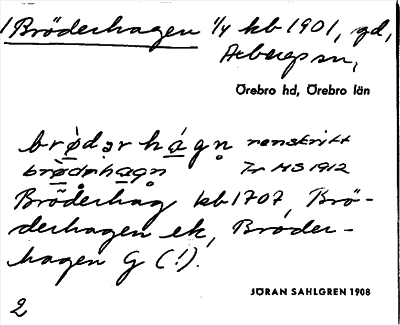 1 Bröderhagen 1/4 kb 1901, gd,
Axbergs sn,
Örebro hd, Örebro län
brø̀dərhágn̥ renskrift
brø̀dn̥hagn̥ Jr MS 1912
Bröderhag kb 1707, Brö-
derhagen ek, Bröder-
hagen G (!).
JÖRAN SAHLGREN 1908
2